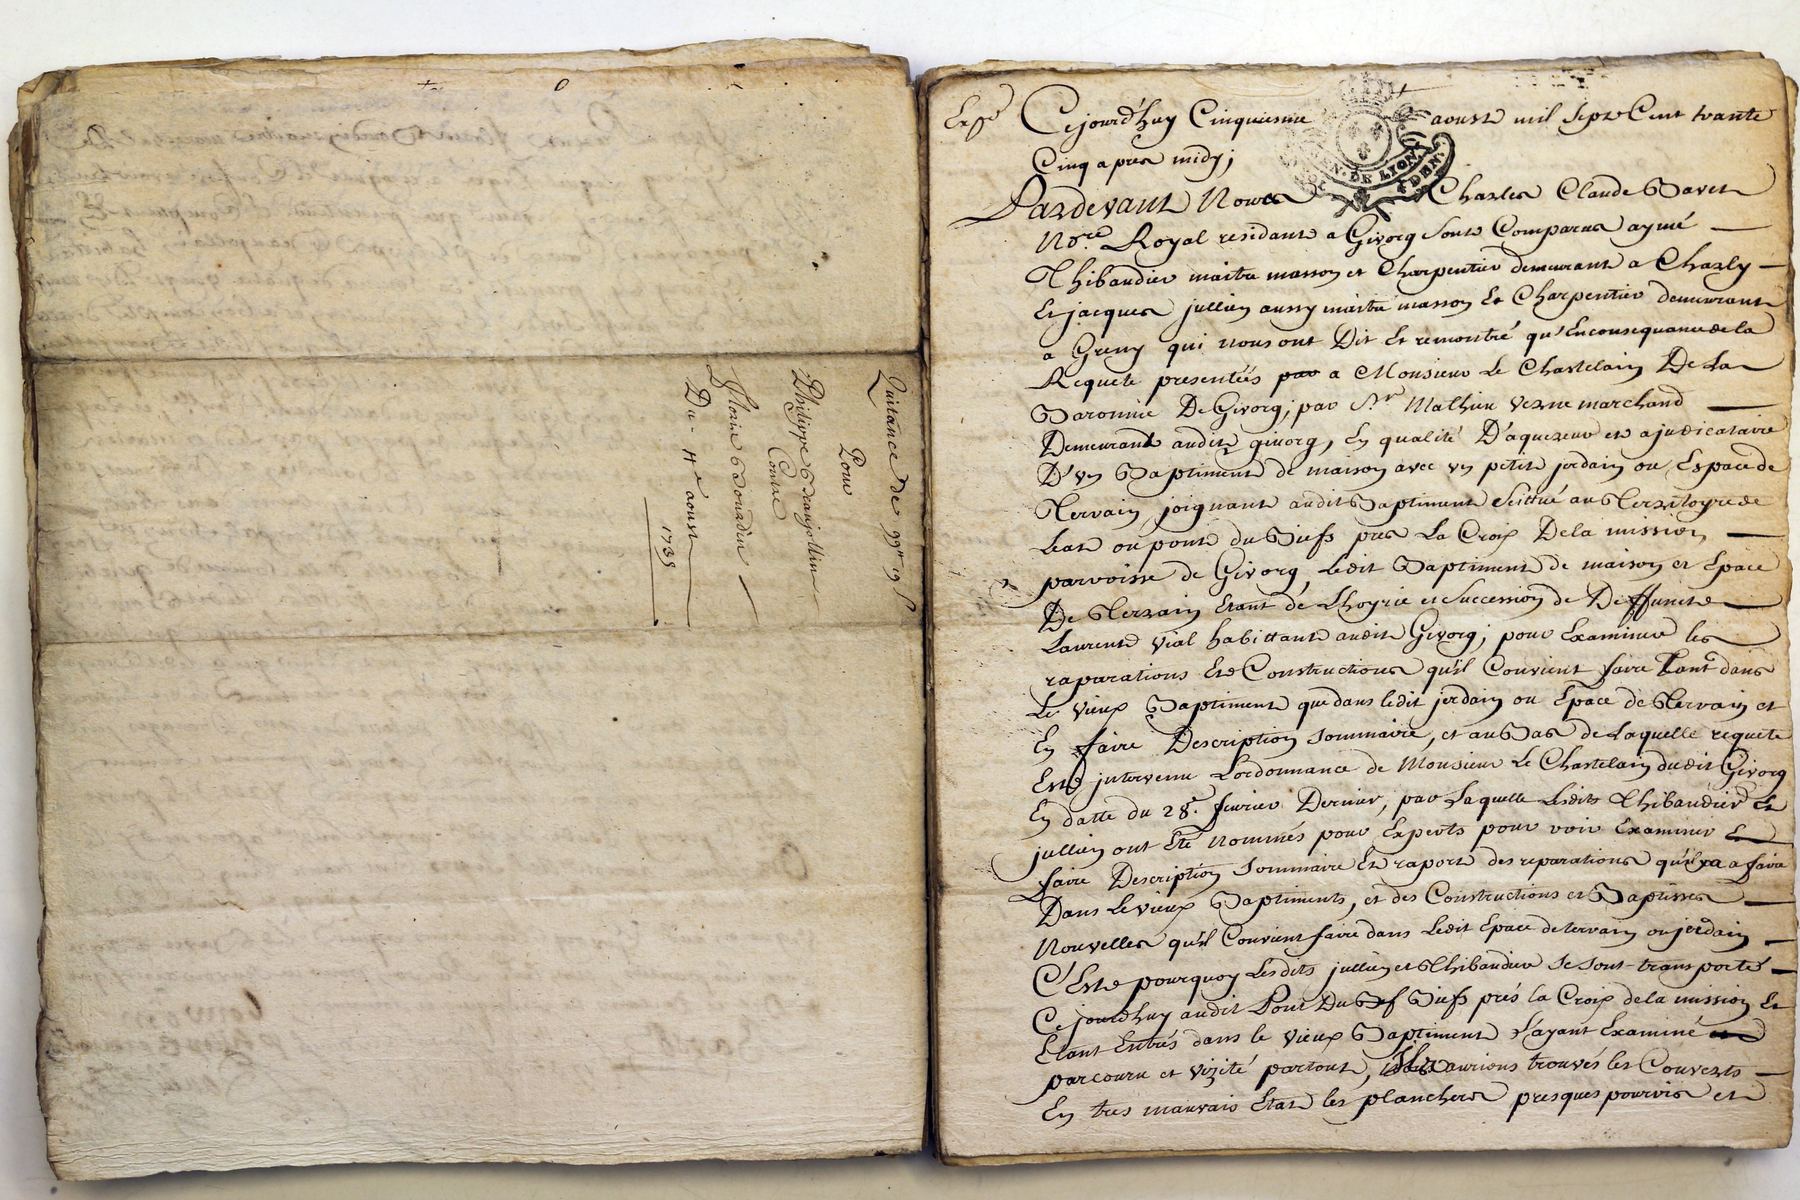 Quitance de 99lt 19 s
Pour
Philippe Beaujollin
Contre
Florie Bourdin
Du 11e aoust
1735
Expé
Cejourd'huy Cinquiesme aoust mil sept Cent trante
Cinq apres midy;
GEN. DE LYON
2 DEN.
Pardevant Nous Charles Claude Bavet
Nore. Royal residant a Givorg sont Comparus aymé
Thibaudier maitre masson et Charpentier demeurant a Charly
Et jacques jullien aussy maitre masson Et Charpentier demeurant
a Greny qui nous ont Dit Et remontré qu'Enconsequance de la
Requete presentéis par a Monsieur Le Chastelain De La
Baronnie De Givorg, par Sr. Mathieu Verne marchand
Demeurant audit givorg, En qualité D'aquereur et ajudicataire
D'un Baptiment de maison avec un petit jerdain ou Espace de
Terrain joignant audit Baptiment scittué au Territoyre de
Lat ou pont du Biefs pres La Croix De la mission,
parroisse de Givorg, Ledit Baptiment de maison et Epace
De Terrain Etant de Lhoyrie et Succession de Deffuncte
Laurent Vial habittant audit Givorg, pour Examiner les
raparations Et Constructions qu'il Convient faire tant dans
Le vieux Baptiment que dans ledit jerdain ou Epace de Terrain et
En faire Description sommaire, et au Bas de Laquelle requete
Est intervenu Lordonnance de Monsieur Le Chastelain dudit Givorg
En datte du 28e. fevrier Dernier, par Laquelle Lesdits Thibaudier Et
jullien ont Eté nommés pour Experts pour voir Examiner Et
faire Description sommaire Et raport des reparations qu'il y a a faire
Dans Le vieux Baptiments, et des Constructions et Baptisses
Nouvelles qu'il Convient faire dans Ledit Epace de terrain ou jerdain
C'Est pourquoy Lesdits jullien et Thibaudier se sont transportés
Cejourdhuy audit Pont Du Bief Biefs prés la Croix de la mission Et
Etant Entrés dans le vieux Baptiment L'ayant Examiné et
parcouru et vizité partout, ils aurions trouvés les Couverts
En tres mauvais Etat les planchers presques pourris et